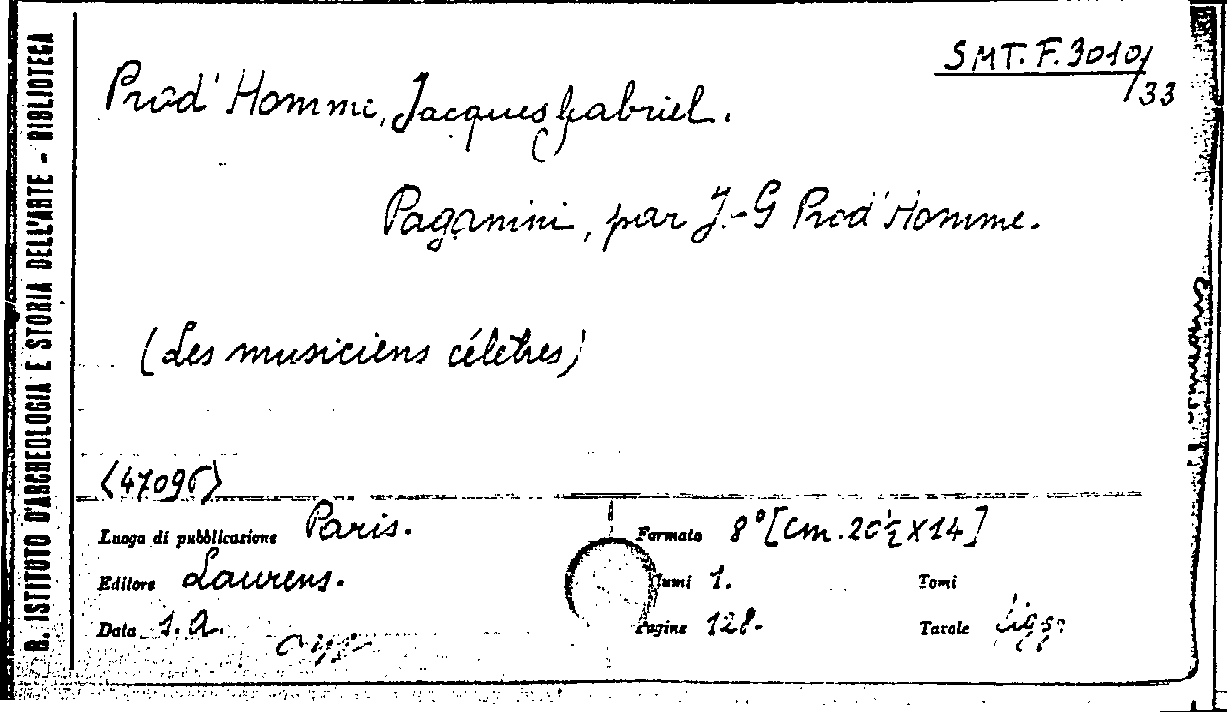 SMT. F. 3010/
/33
Prod' Homme, Jacques Gabriel.
Paganini, par J.-G Prod'Homme.
(Les musiciens célèbres)
<47095>
Luogo di pubblicazione Paris. Formato 8° [cm. 20½ X 14]
Editore Laurens. 1. Tomi
Data s.a. Pagine 128. Tavole
B. ISTITUTO D'ARCHEOLOGIA E STORIA DELL'ARTE - BIBLIOTECA